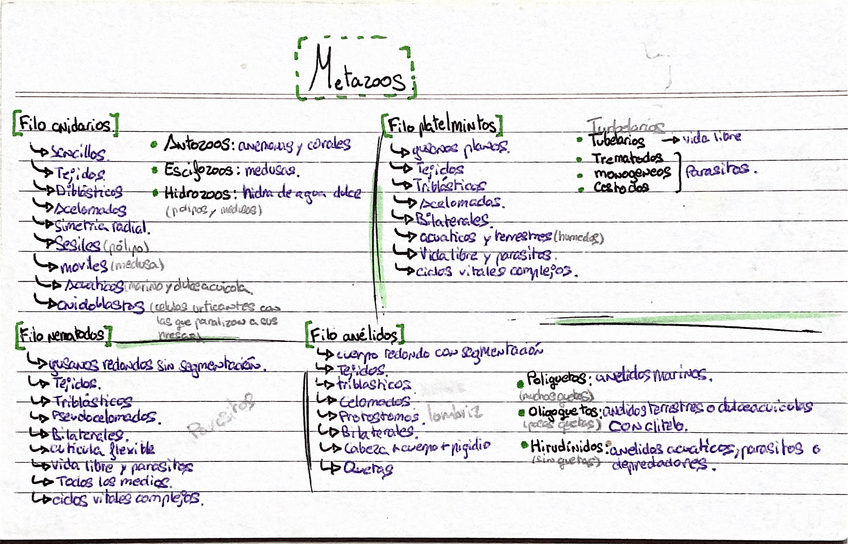 Metazoos
[Filo cnidarios]
↳ Sencillos
↳ Tejidos
↳ Diblásticos
↳ Acelomados
↳ Simetría radial.
↳ Sesiles (pólipo)
↳ moviles (medusa)
↳ Acuaticos (marino y dulceacuicola
↳ cnidoblastos (celulas urticantes con
las que paralizan a sus
presas)
• Antozoos: anemonas y corales
• Escifozoos: medusas.
• Hidrozoos: hidra de agua dulce
(polipos y medusas)
[Filo platelmintos]
↳ gusanos planos.
↳ Tejidos
↳ Triblásticos
↳ Acelomados.
↳ Bilaterales.
↳ acuaticos y terrestres (humedos)
↳ Vida libre y parasitos.
↳ ciclos vitales complejos.
Turbelarios
• Tubelarios → vida libre
• Trematodos
• monogeneos ] Parasitos.
• Cestodos
[Filo nematodos]
↳ gusanos redondos sin segmentación.
↳ Tejidos.
↳ Triblásticos
↳ Pseudocelomados.
↳ Bilaterales.
↳ cuticula flexible
↳ vida libre y parasitos
↳ Todos los medios.
↳ ciclos vitales complejos.
Parasitos
[Filo anélidos]
↳ cuerpo redondo con segmentación
↳ Tejidos.
↳ triblásticos.
↳ Celomados.
↳ Protostomos. lombriz
↳ Bilaterales.
↳ Cabeza + cuerpo + pigidio
↳ Quetas
• Poliquetos: anelidos marinos.
(muchas quetas)
• Oligoquetos: anelidos terrestres o dulceacuicolas
(pocas quetas) con clitelo.
• Hirudínidos: anelidos acuaticos, parasitos o
(sin quetas) depredadores.